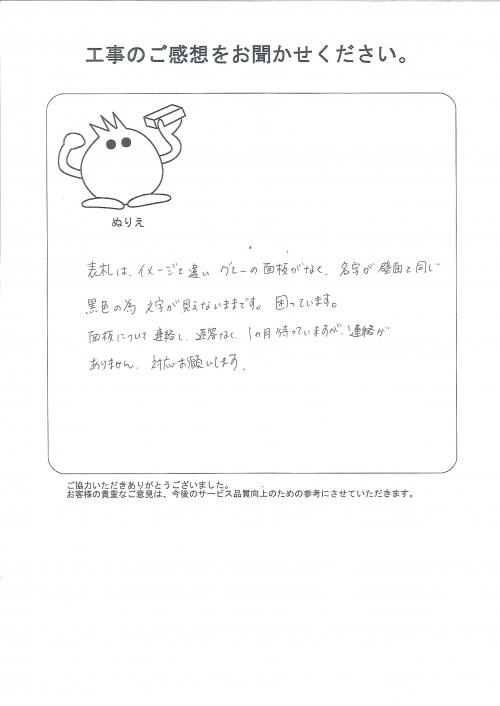 工事のご感想をお聞かせください。
ぬりえ
表札は、イメージと違い グレーの面板がなく、名字が壁面と同じ
黒色の為 文字が見えないままです。困っています。
面板について連絡し、返答なく、1ヵ月待っていますが、連絡が
ありません、対応お願いします、
ご協力いただきありがとうございました。
お客様の貴重なご意見は、今後のサービス品質向上のための参考にさせていただきます。